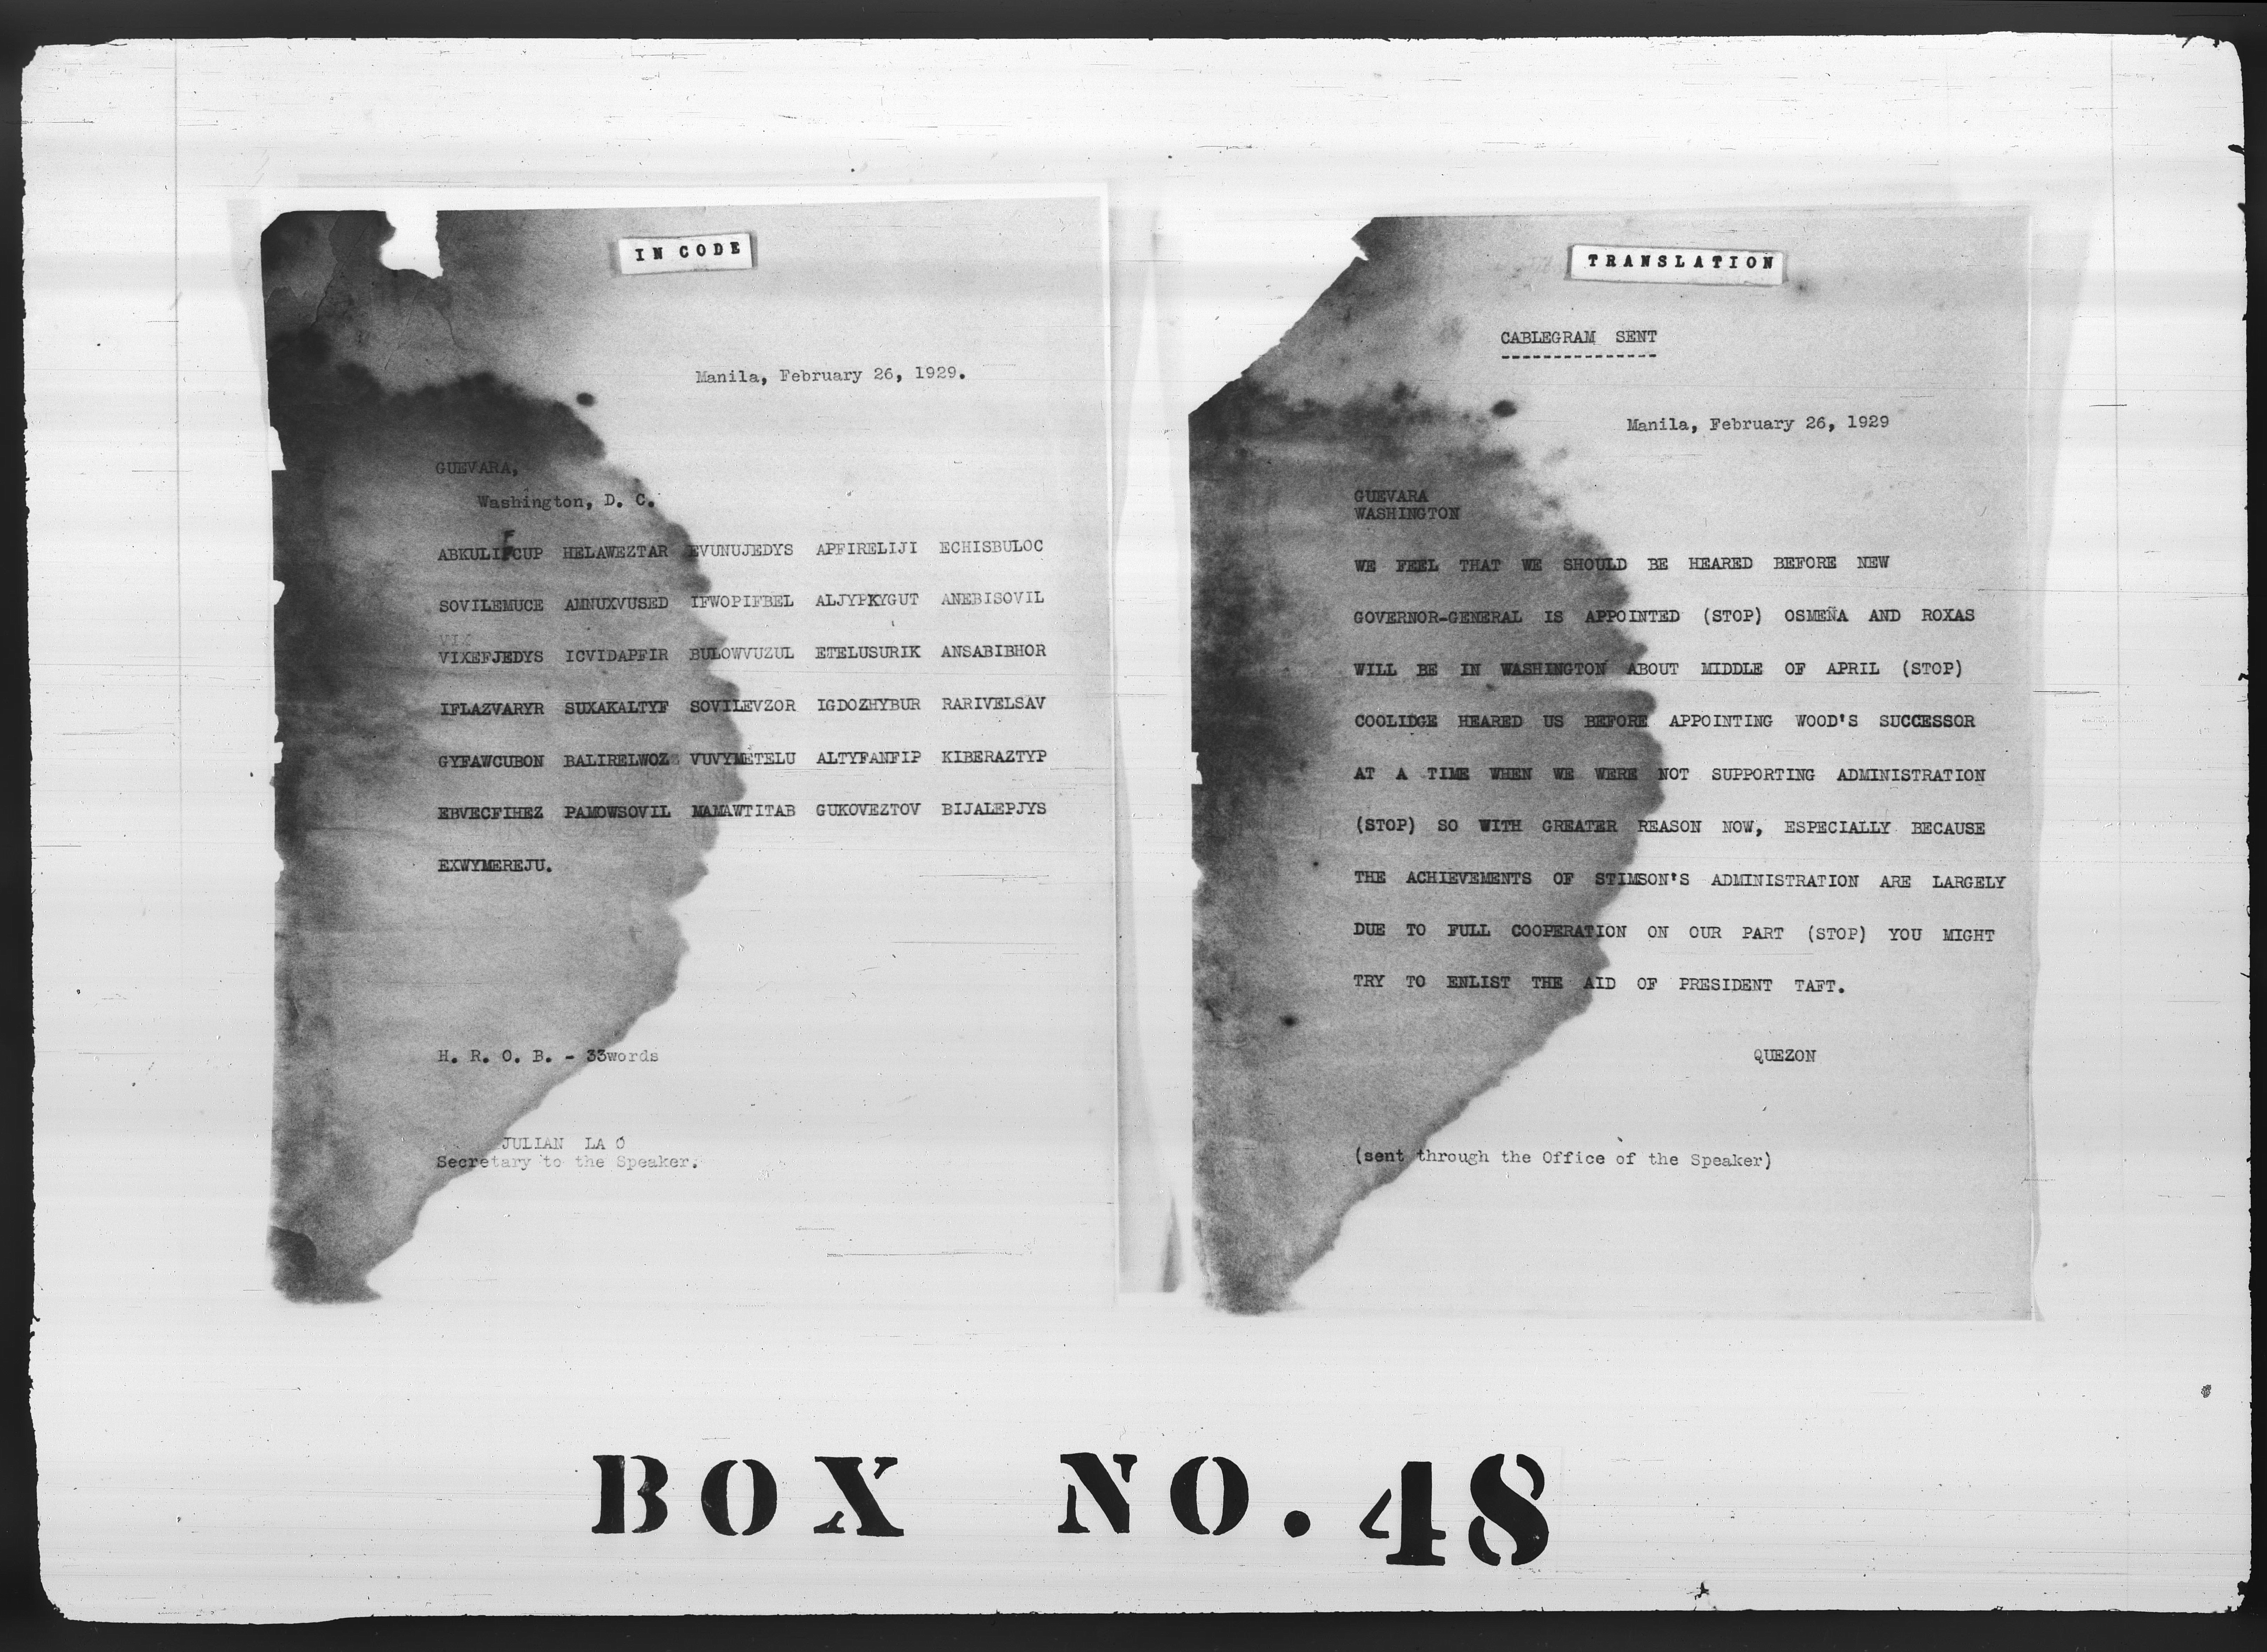 IN CODE
Manila, February 26, 1929.
GUEVARA,
Washington, D. C.
F
ABKULIFCUP HELAWEZTAR EVUNUJEDYS APFIRELIJI ECHISBULOC
SOVILEMUCE AMNUXVUSED IFWOPIFBEL ALJYPKYGUT ANEBISOVIL
VIX
VIXEFJEDYS ICVIDAPFIR BULOWVUZUL ETELUSURIK ANSABIBHOR
IFLAZVARYR SUXAKALTYF SOVILEVZOR IGDOZHYBUR RARIVELSAV
GYFAWCUBON BALIRELWOZ VUVYMETELU ALTYFANFIP KIBERAZTYP
EBVECFIHEZ PAMOWSOVIL MAMAWTITAB GUKOVEZTOV BIJALEPJYS
EXWYMEREJU.
H. R. O. B. - 33words
JULIAN LA Ó
Secretary to the Speaker.
TRANSLATION
CABLEGRAM SENT
Manila, February 26, 1929
GUEVARA
WASHINGTON
WE FEEL THAT WE SHOULD BE HEARED BEFORE NEW
GOVERNOR-GENERAL IS APPOINTED (STOP) OSMEÑA AND ROXAS
WILL BE IN WASHINGTON ABOUT MIDDLE OF APRIL (STOP)
COOLIDGE HEARED US BEFORE APPOINTING WOOD'S SUCCESSOR
AT A TIME WHEN WE WERE NOT SUPPORTING ADMINISTRATION
(STOP) SO WITH GREATER REASON NOW, ESPECIALLY BECAUSE
THE ACHIEVEMENTS OF STIMSON'S ADMINISTRATION ARE LARGELY
DUE TO FULL COOPERATION ON OUR PART (STOP) YOU MIGHT
TRY TO ENLIST THE AID OF PRESIDENT TAFT.
QUEZON
(sent through the Office of the Speaker)
BOX NO. 48